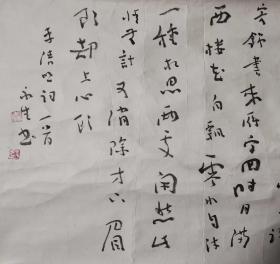 寄锦书来雁字回时月满
西楼花自飘零水自流
一种相思两处闲愁此
情无计可消除才下眉
头却上心头
李清照词一首
书